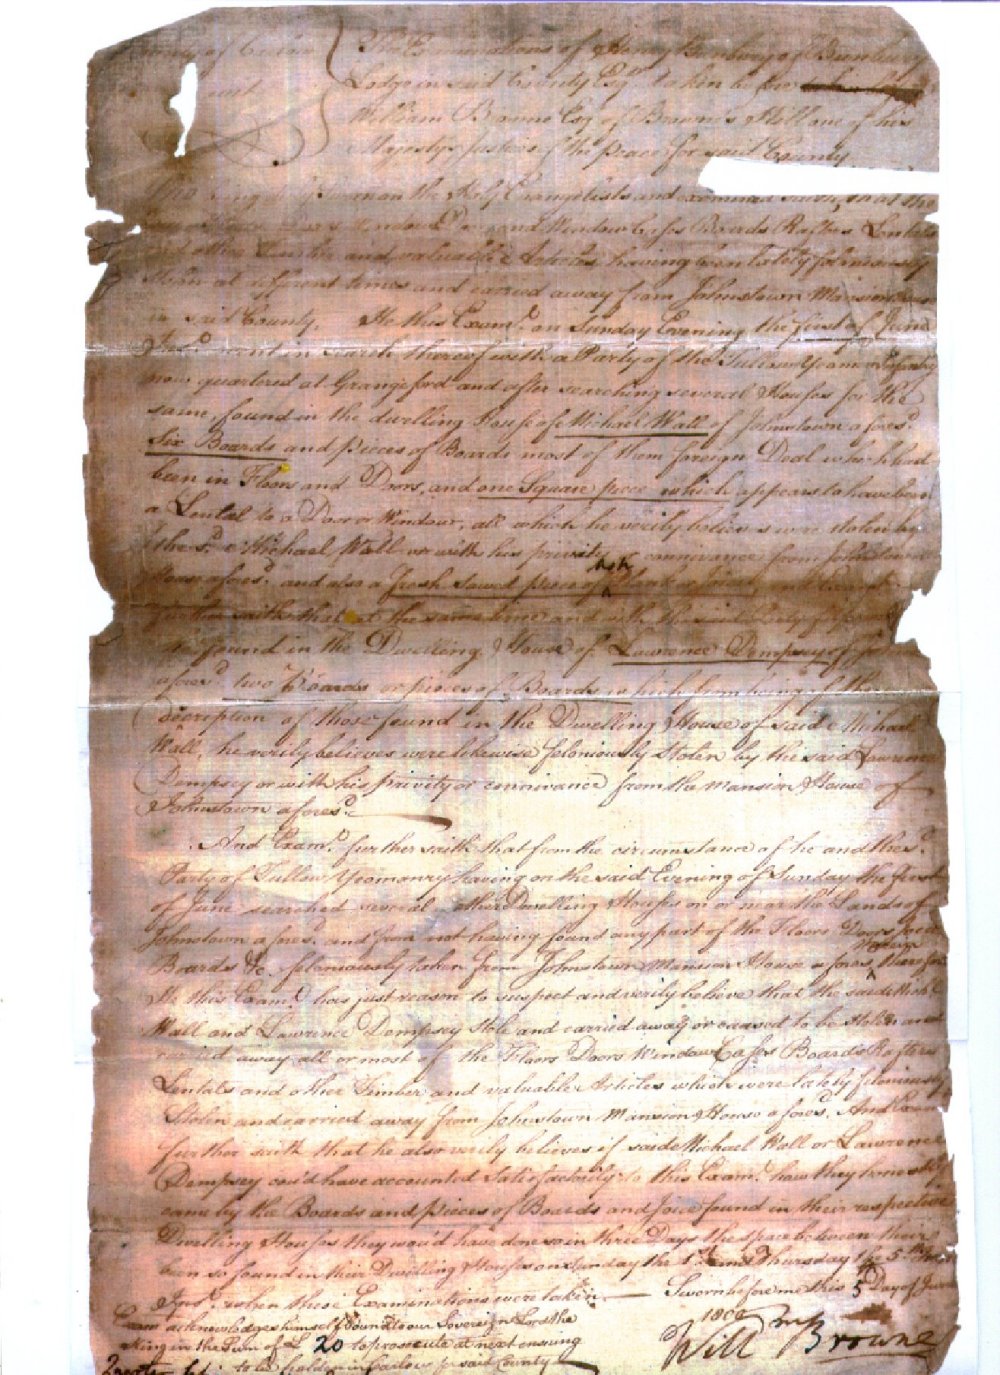 County of Carlow The Examinations of Henry Bunbury of Bunbury
Lodge in said County Esqr. taken before
William Browne Esq. of Browne's Hill one of his
Majestys Justices of the peace for said County
being Sworn on the Holy Evangelists and examined saith, that the
Window Cases Boards Rafters Lentals
and other Timber and valuable Articles having been lately feloniously
Stolen at different times and carried away from Johnstown Mansion House
in said County. He this Examt. on Sunday Evening the first of June
Inst. went in search thereof with a Party of the Tullow Yeomen Infantry
now quartered at Grangeford and after searching several Houses for the
same, found in the dwelling House of Michael Wall of Johnstown afores.d
Six Boards and pieces of Boards most of them foreign Deal which had
been in Floors and Doors, and one Square piece which appears to have been
a Lental to a Door or Window, all which he verily believes were stolen by
the sd. Michael Wall or with his privity or connivance from Johnstown
House afores.d and also a fresh Sawed piece of Ash
saith that at the same time and with the said Party
found in the Dwelling House of Lawrence Dempsey of
afores.d two Boards or pieces of Boards which from being of the
description of those found in the Dwelling House of said Michael
Wall, he verily believes were likewise feloniously Stolen by the said Lawrence
Dempsey or with his privity or connivance from the Mansion House of
Johnstown afores.d
And Examt. further saith that from the circumstance of he and the sd.
Party of Tullow Yeomanry having on the said Evening of Sunday the first
of June searched several other Dwelling Houses on or near the Lands of
Johnstown afores.d and from not having found any part of the Floors Doors
Boards &c. feloniously taken from Johnstown Mansion House afores.d therein therefore
He this Examt. has just reason to suspect and verily believe that the said Michl.
Wall and Lawrence Dempsey Stole and carried away or caused to be stolen and
carried away all or most of the Floors Doors Window Cases Boards Rafters
Lentals and other Timber and valuable Articles which were lately feloniously
Stolen and carried away from Johnstown Mansion House afores.d. And Examt.
further saith that he also verily believes if said Michael Wall or Lawrence
Dempsey cou'd have accounted Satisfactorily to this Examt. how they honestly
came by the Boards and pieces of Boards and Joice found in their respective
Dwelling Houses they wou'd have done so in three Days the space between their
been so found in their Dwelling Houses on Sunday the 1st. and Thursday the 5th
Inst. when these Examinations were taken — Sworn before me this 5 Day of June
Examt acknowledges himself bound to our Sovereign Lord the
King in the Sum of £ 20 to prosecute at next ensuing
to be holden in Carlow for said County
Will Browne